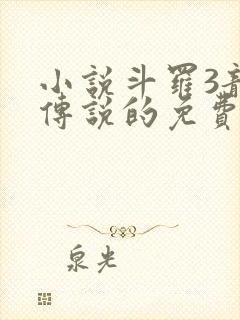 小說斗羅3龍
傳說的免費
泉光